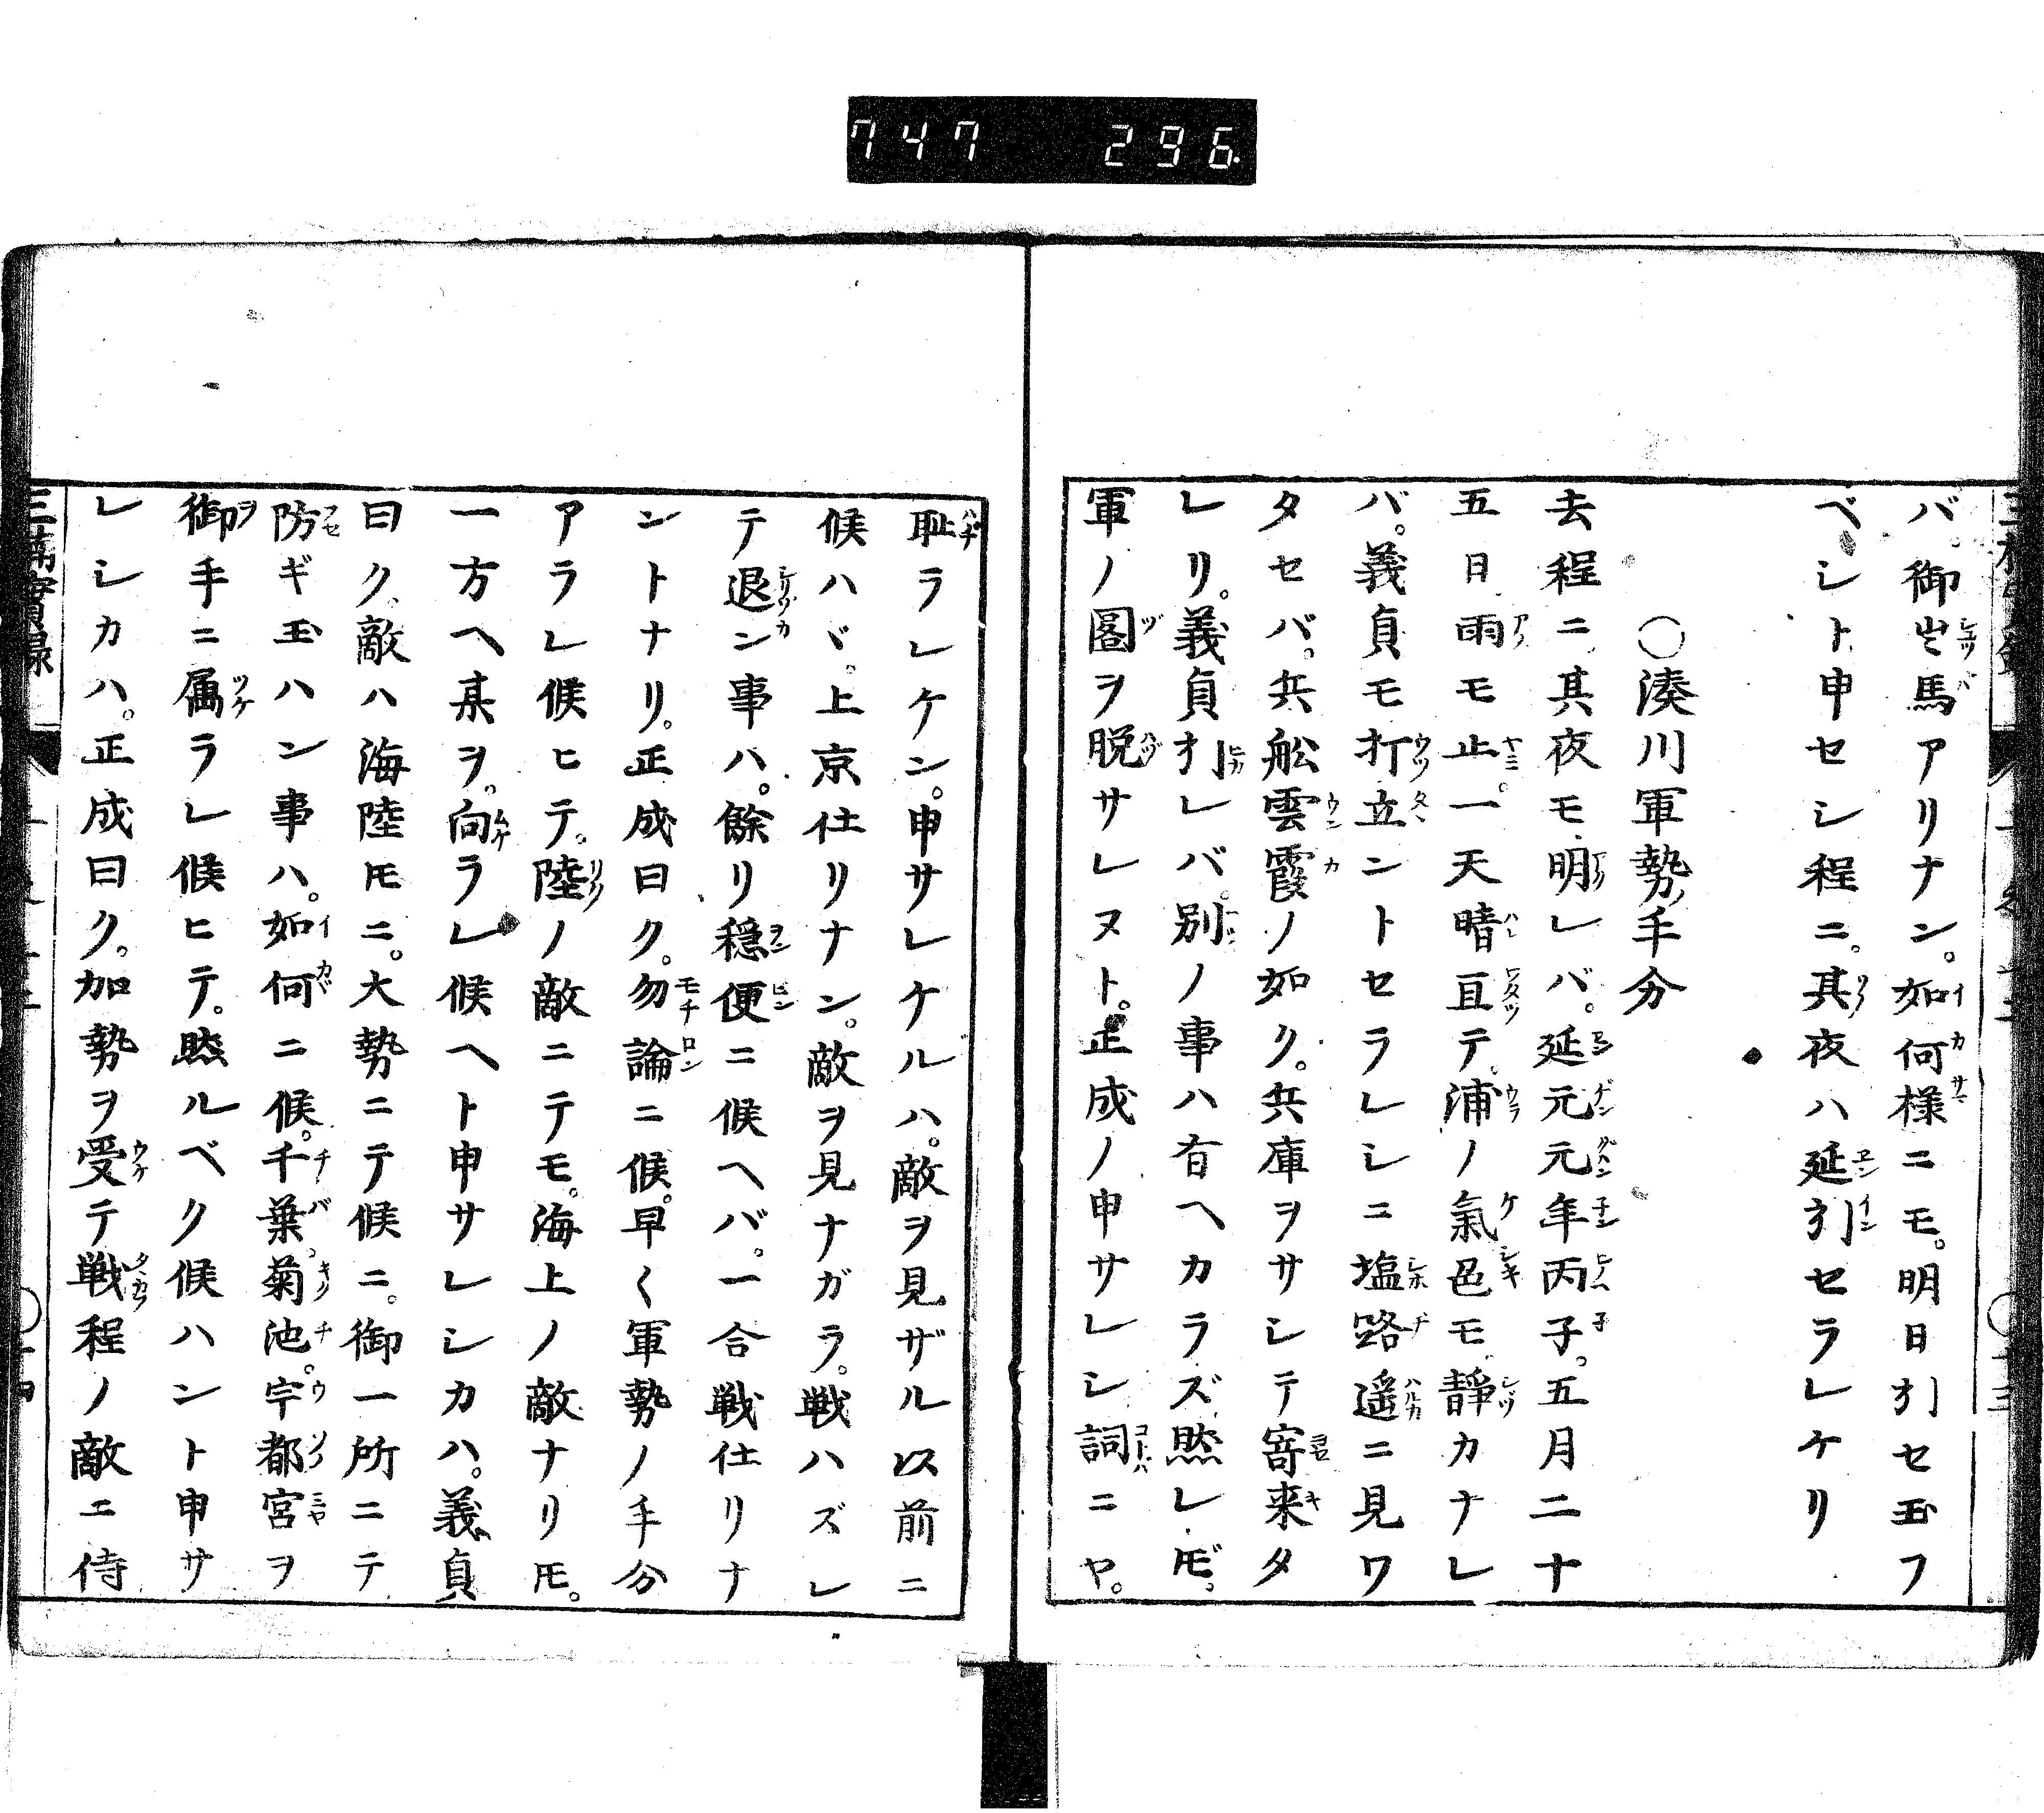 747 296
バ。御出馬アリナン。如何様ニモ。明日引セ玉フ
ベシト申セシ程ニ。其夜ハ延引セラレケリ
〇湊川軍勢手分
去程ニ其夜モ明レバ。延元元年丙子。五月二十
五日雨モ止。一天晴亘テ。浦ノ氣色モ静カナレ
バ。義貞モ打立ントセラレシニ塩路遥ニ見ワ
タセバ。兵舩雲霞ノ如ク。兵庫ヲサシテ寄来タ
レリ。義貞引レバ。別ノ事ハ有ヘカラズ。然レ𪜈。
軍ノ圖ヲ脱サレヌト。正成ノ申サレシ詞ニヤ。
恥ラレケン。申サレケルハ。敵ヲ見ザル以前ニ
候ハヾ。上京仕リナン。敵ヲ見ナガラ。戦ハズレ
テ退ン事ハ。餘リ穏便ニ候ヘバ。一合戦仕リナ
ントナリ。正成曰ク。勿論ニ候。早く軍勢ノ手分
アラレ候ヒテ。陸ノ敵ニテモ。海上ノ敵ナリ𪜈。
一方ヘ某ヲ。向ラレ候ヘト申サレシカハ。義貞
曰ク。敵ハ海陸𪜈ニ。大勢ニテ候ニ。御一所ニテ
防ギ玉ハン事ハ。如何ニ候。千葉。菊池。宇都宮ヲ
御手ニ属ラレ候ヒテ。然ルベク候ハント申サ
レシカハ。正成曰ク。加勢ヲ受テ戦程ノ敵ニ侍